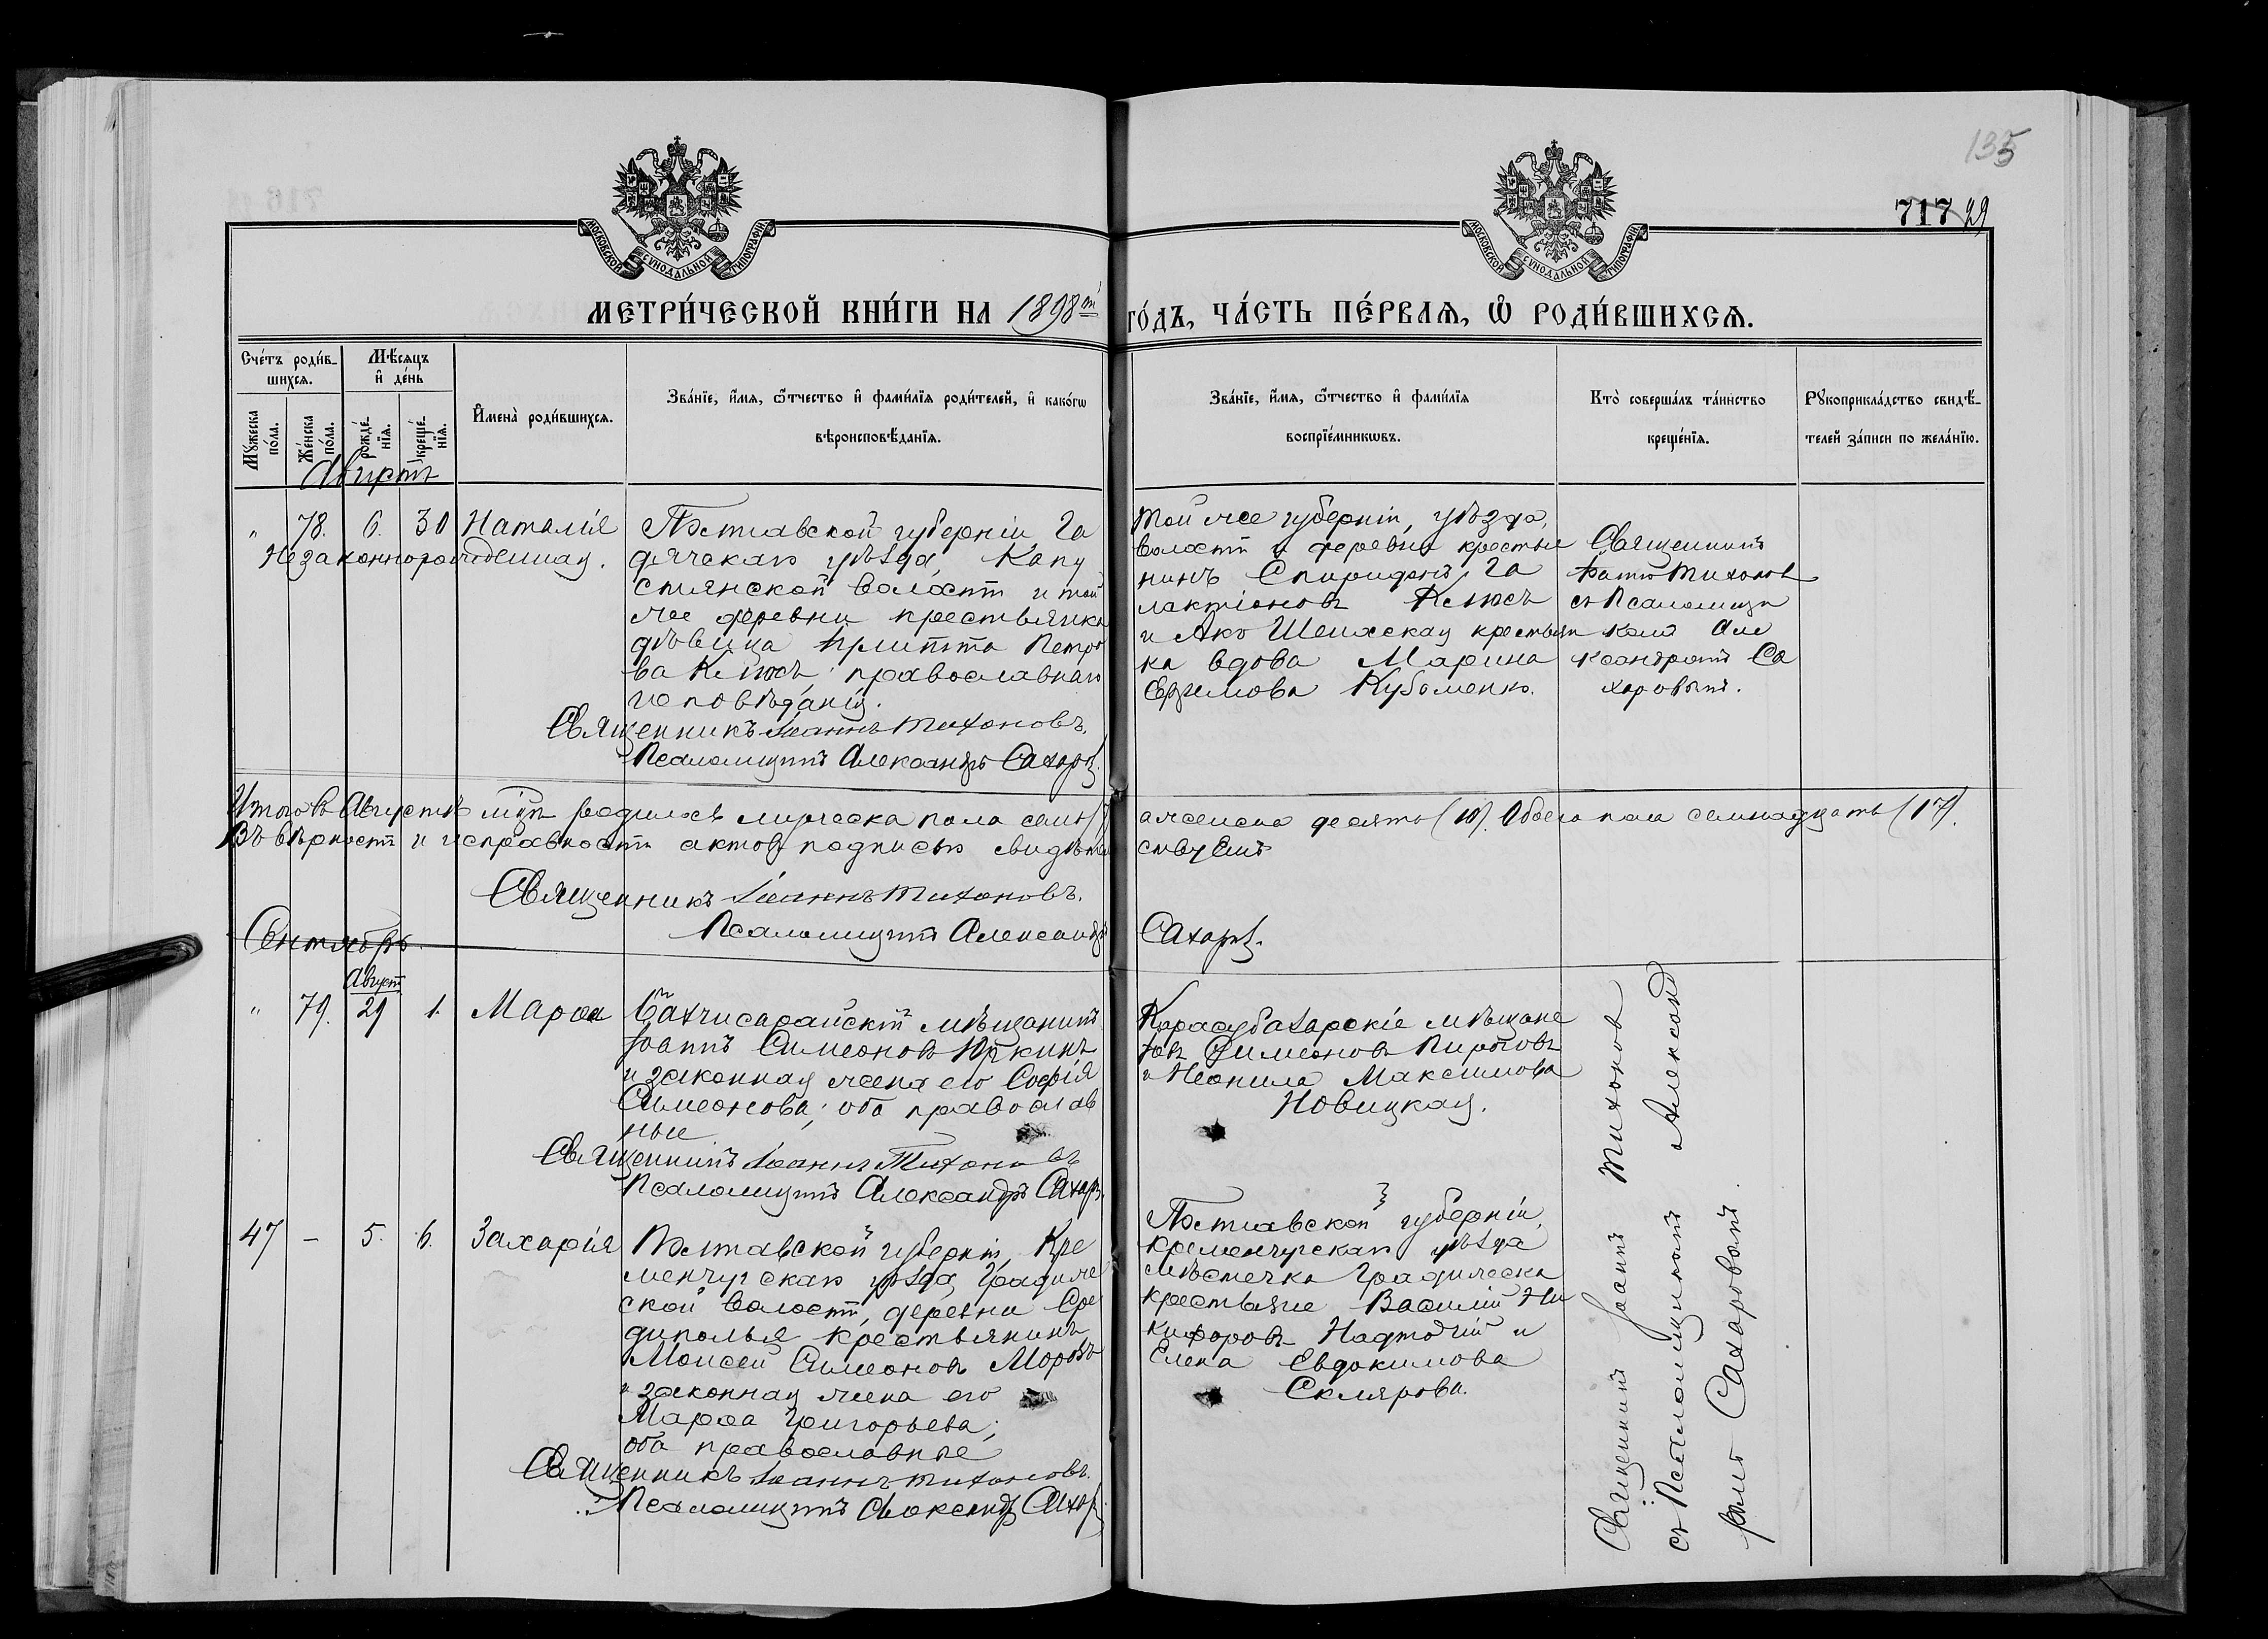 135
717 29
МОСКОВСКОЙ СѴНОДАЛЬНОЙ ТИПОГРАФІИ
МОСКОВСКОЙ СѴНОДАЛЬНОЙ ТИПОГРАФІИ
МЕТРИ́ЧЕСКОЙ КНИ́ГИ НА 1898й го́дъ, ЧА́СТЬ ПЕ́РВАѦ, Ѡ҆ РОДИ́ВШИХСѦ.
Сче́тъ роди́в-
шихсѧ.
Мѣ́сѧцъ
и҆ де́нь
Мꙋ́жеска по́ла.
Же́нска по́ла.
рожде́-нїѧ.
креще́-нїѧ.
И҆мена̀ роди́вшихсѧ.
Зва́нїе, и҆́мѧ, ѻ҆́тчество и҆ фами́лїѧ роди́телей, и҆ како́гѡ
вѣроисповѣ́данїѧ.
Зва́нїе, и҆́мѧ, ѻ҆́тчество и҆ фами́лїѧ
воспрїе́мникѡвъ.
Кто̀ соверша́лъ та́инство
креще́нїѧ.
Рꙋкоприкла́дство свидѣ́-
телей за́писи по жела́нїю.
Августъ
" 78. 6. 30 Наталія
Незаконнорожденная.
Полтавской губерніи Га
дячскаго уѣзда, Капу
стянской волости и той
же деревни крестьянка
дѣвица Петро
ва православнаго
исповѣданія.
Священникъ Іоаннъ Тихоновъ.
Псаломщикъ Александръ Сахаров
Той же губерніи, уѣзда,
волости и деревни крестья
нинъ Спиридонъ Га
лактіоновъ
и крестьян
ка вдова Марина
Ефимова
Священникъ
Іоаннъ Тихоновъ
съ Псаломщи
комъ Але
ксандромъ Са
харовымъ.
Итого въ Августѣ м-цѣ родилось мужеска пола семь (7) а женска десять (10). Обоего пола семнадцать (17).
Въ вѣрности и исправности актовъ подписью свидѣтель ствуемъ
Священникъ Іоаннъ Тихоновъ.
Псаломщикъ Александръ Сахаров.
Сентябрь.
Август
" 79. 29 1. Марѳа
Бахчисарайскій мѣщанинъ
Іоаннъ Симеоновъ
и законная жена его Софія
Симеонова; оба православ
ные
Священникъ Іоаннъ Тихоновъ
Псаломщикъ Александръ Сахаров.
Карасубазарскіе мѣщане
Симеоновъ Пироговъ
и Неонила Максимова
Новицкая.
47 – 5. 6. Захарія
Полтавской губерніи, Кре
менчугскаго уѣзда, Градижс
ской волости, деревни Сре
диполья крестьянинъ
Моисей Симеоновъ Морозъ
и законная жена его
Марѳа Григорьева;
оба православные
Священникъ Іоаннъ Тихоновъ.
Псаломщикъ Александръ Сахаров
Полтавской губерніи,
Кременчугскаго уѣзда
мѣстечка Градижска
крестьяне Василій Ни
кифоровъ Надточій и
Елена Евдокимова
Склярова.
Священникъ Іоаннъ Тихоновъ
съ Псаломщикомъ Александ
ромъ Сахаровымъ.